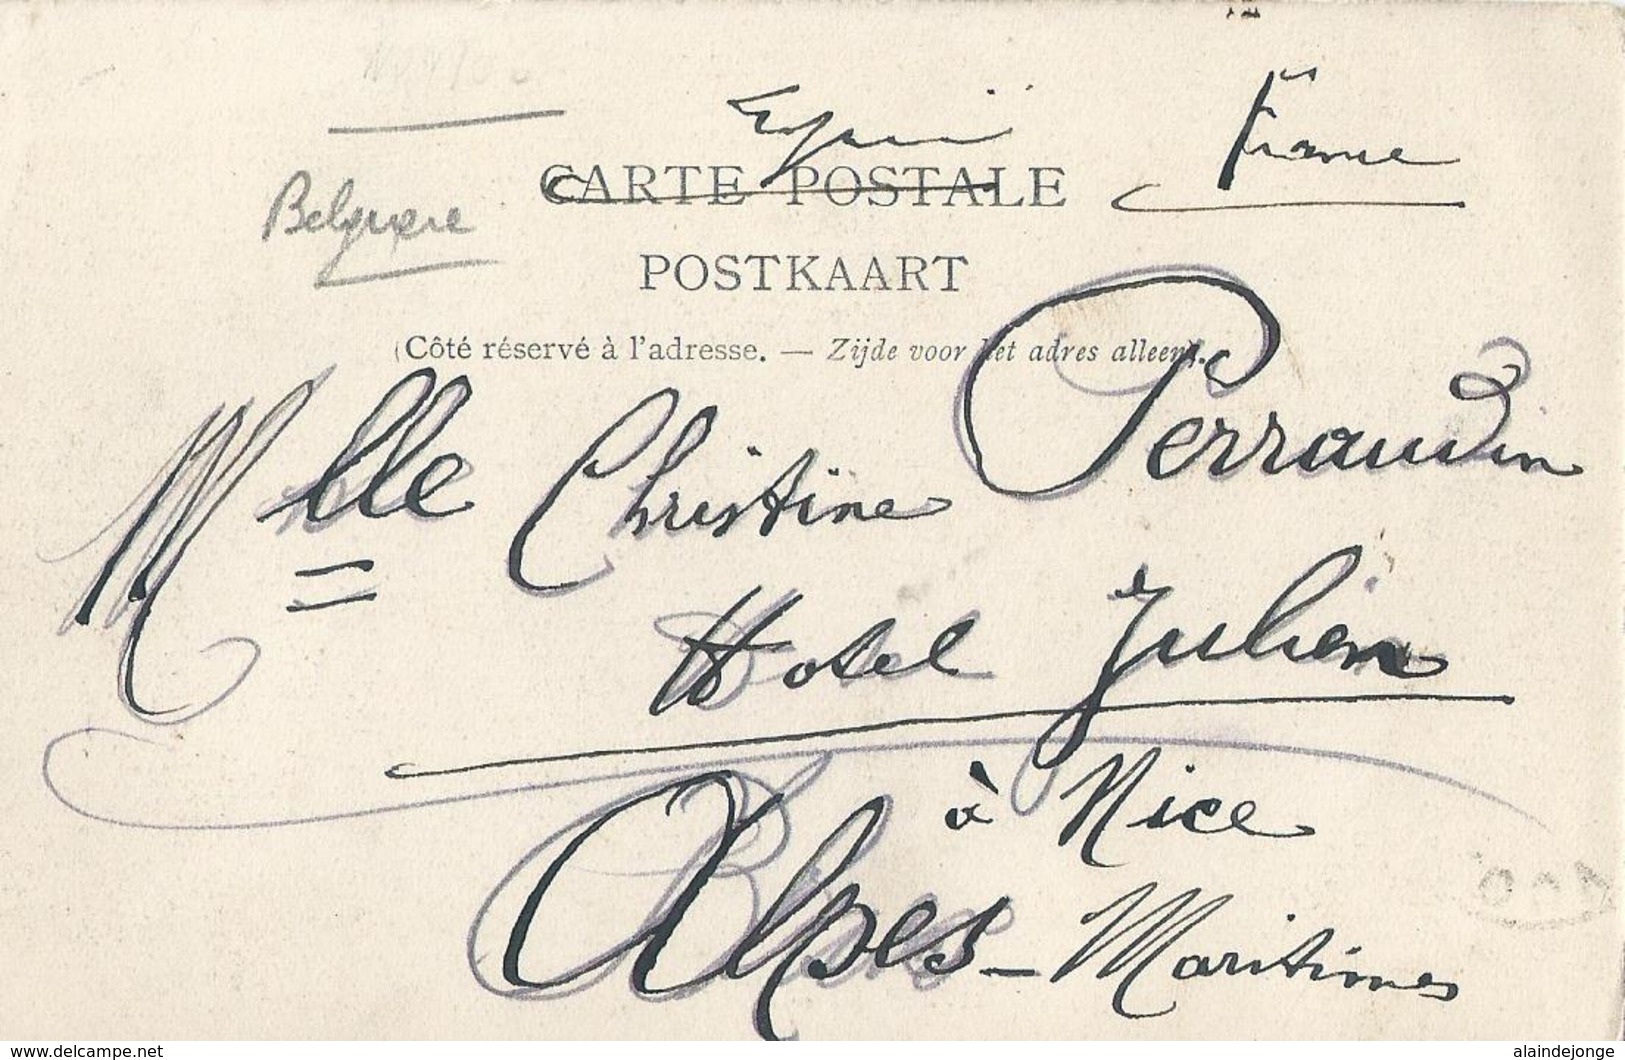 France
Belgique
CARTE POSTALE
POSTKAART
(Côté réservé à l'adresse. — Zijde voor het adres alleen).
Mlle Christine Perraudin
Hotel Julien
à Nice
Alpes-Maritimes
www.delcampe.net
alaindejonge